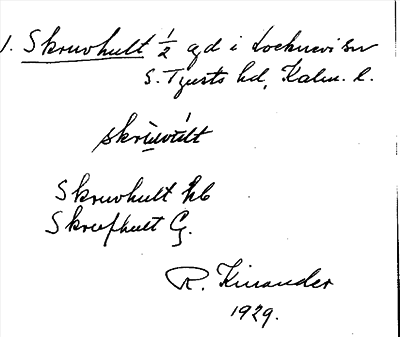 1. Skruvhult ½ gd i Locknevi sn
S. Tjusts hd, Kalm. l.
skrùvúlt
Skruvhult kb
Skrufhult G.
R. Kinander
1929.